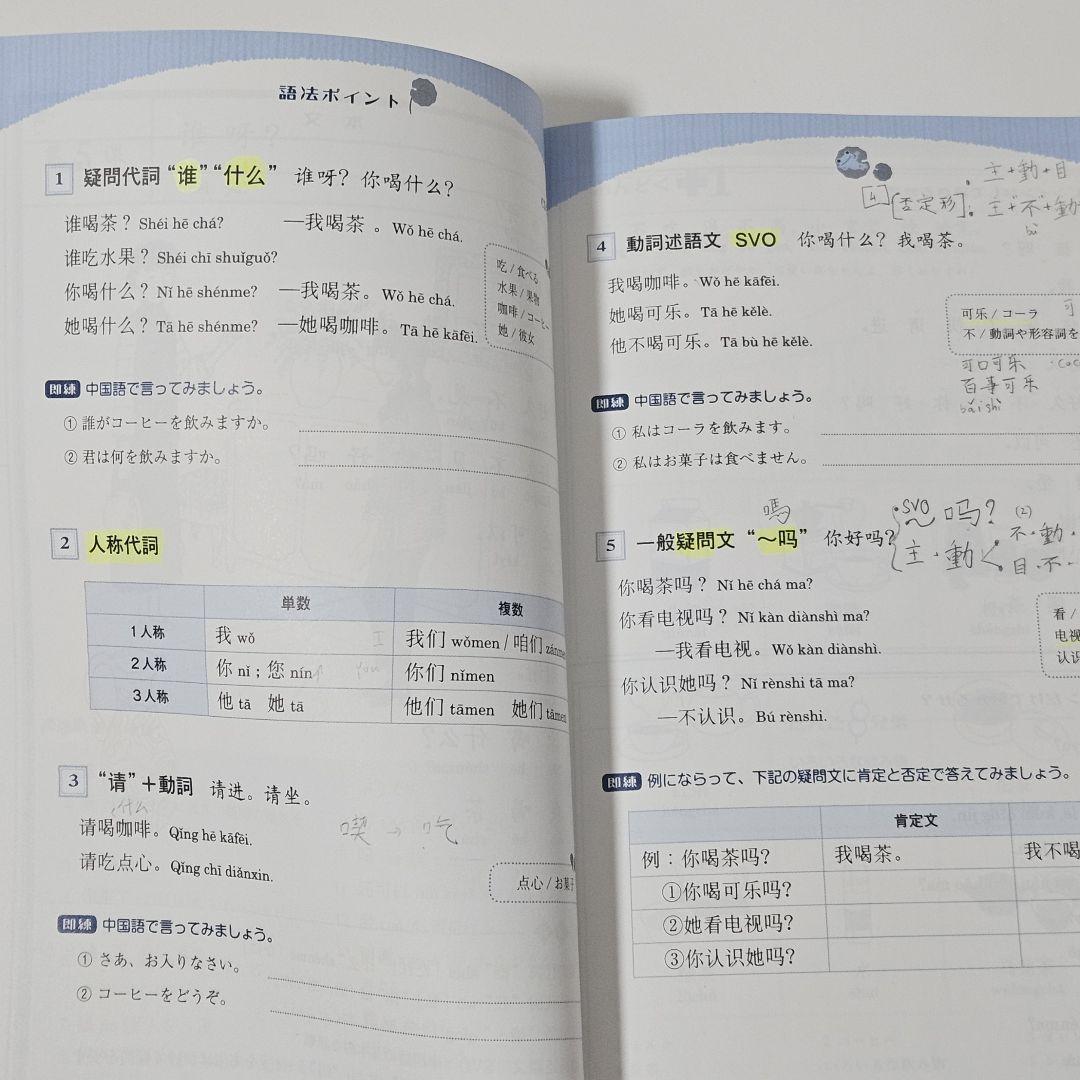 語法ポイント
1 疑問代詞 “谁” “什么” 谁呀？ 你喝什么？
谁喝茶？ Shéi hē chá? —我喝茶 。 Wǒ hē chá.
谁吃水果？ Shéi chī shuǐguǒ?
你喝什么？ Nǐ hē shénme? —我喝茶。 Wǒ hē chá.
她喝什么？ Tā hē shénme? —她喝咖啡。 Tā hē kāfēi.
吃 / 食べる
水果 / 果物
咖啡 / コーヒー
她 / 彼女
即練 中国語で言ってみましょう。
① 誰がコーヒーを飲みますか。
② 君は何を飲みますか。
2 人称代詞
単数 複数
1人称 我 wǒ 我们 wǒmen / 咱们 zánme
2人称 你 nǐ ; 您 nín you 你们 nǐmen
3人称 他 tā 她 tā 他们 tāmen 她们 tāmen
3 “请”＋動詞 请进。请坐。
什么
请喝咖啡。 Qǐng hē kāfēi.
请吃点心。 Qǐng chī diǎnxin.
喫 → 吃
点心 / お菓子
即練 中国語で言ってみましょう。
① さあ、お入りなさい。
② コーヒーをどうぞ。
主+動+目
4 [否定形]: 主+不+動
bù
4 動詞述語文 SVO 你喝什么？ 我喝茶。
我喝咖啡。 Wǒ hē kāfēi.
她喝可乐。 Tā hē kělè.
他不喝可乐。 Tā bù hē kělè.
可乐 / コーラ
不 / 動詞や形容詞を
可口可乐
百事可乐
bǎi shì
即練 中国語で言ってみましょう。
① 私はコーラを飲みます。
② 私はお菓子は食べません。
嗎
SVO 吗？
主・動
(2)
不・動・
目・不・
5 一般疑問文 “～吗” 你好吗？
你喝茶吗？ Nǐ hē chá ma?
你看电视吗？ Nǐ kàn diànshì ma?
—我看电视。 Wǒ kàn diànshì.
你认识她吗？ Nǐ rènshi tā ma?
—不认识。 Bú rènshi.
看 /
电视
认识
即練 例にならって、下記の疑問文に肯定と否定で答えてみましょう。
肯定文
例：你喝茶吗？ 我喝茶。 我不喝
①你喝可乐吗？
②她看电视吗？
③你认识她吗？